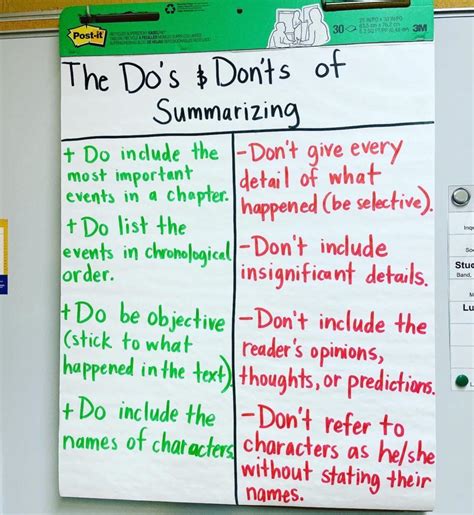 Post-it
30
3M
The Do's & Don'ts of
Summarizing
+ Do include the
most important
events in a chapter.
+ Do list the
events in chronological
order.
+ Do be objective
(stick to what
happened in the text)
+ Do include the
names of characters
-Don't give every
detail of what
happened (be selective).
-Don't include
insignificant details.
-Don't include the
reader's opinions,
thoughts, or predictions.
-Don't refer to
characters as he/she
without stating their
names.
Stud
Band,
Lu